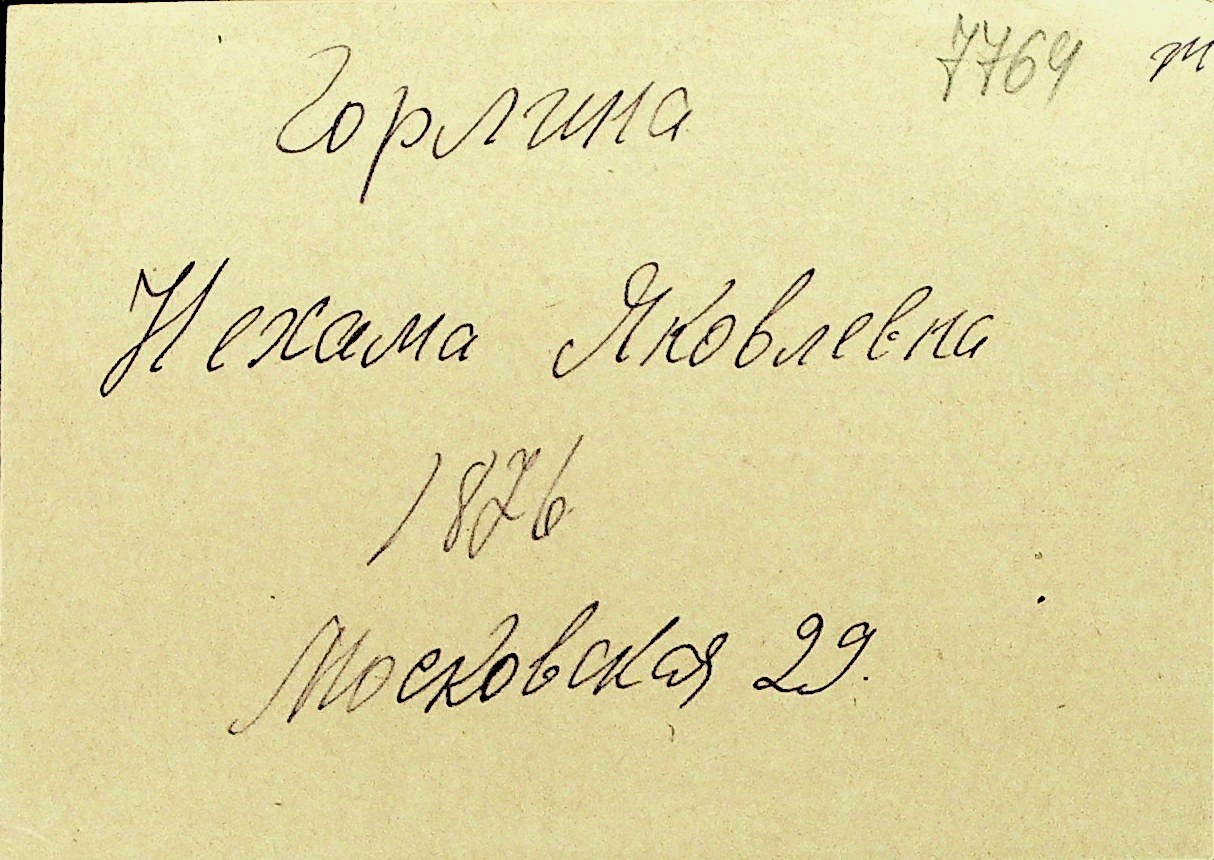 7764 т
Горлина
Нехама Яковлевна
1876
Московская 29.